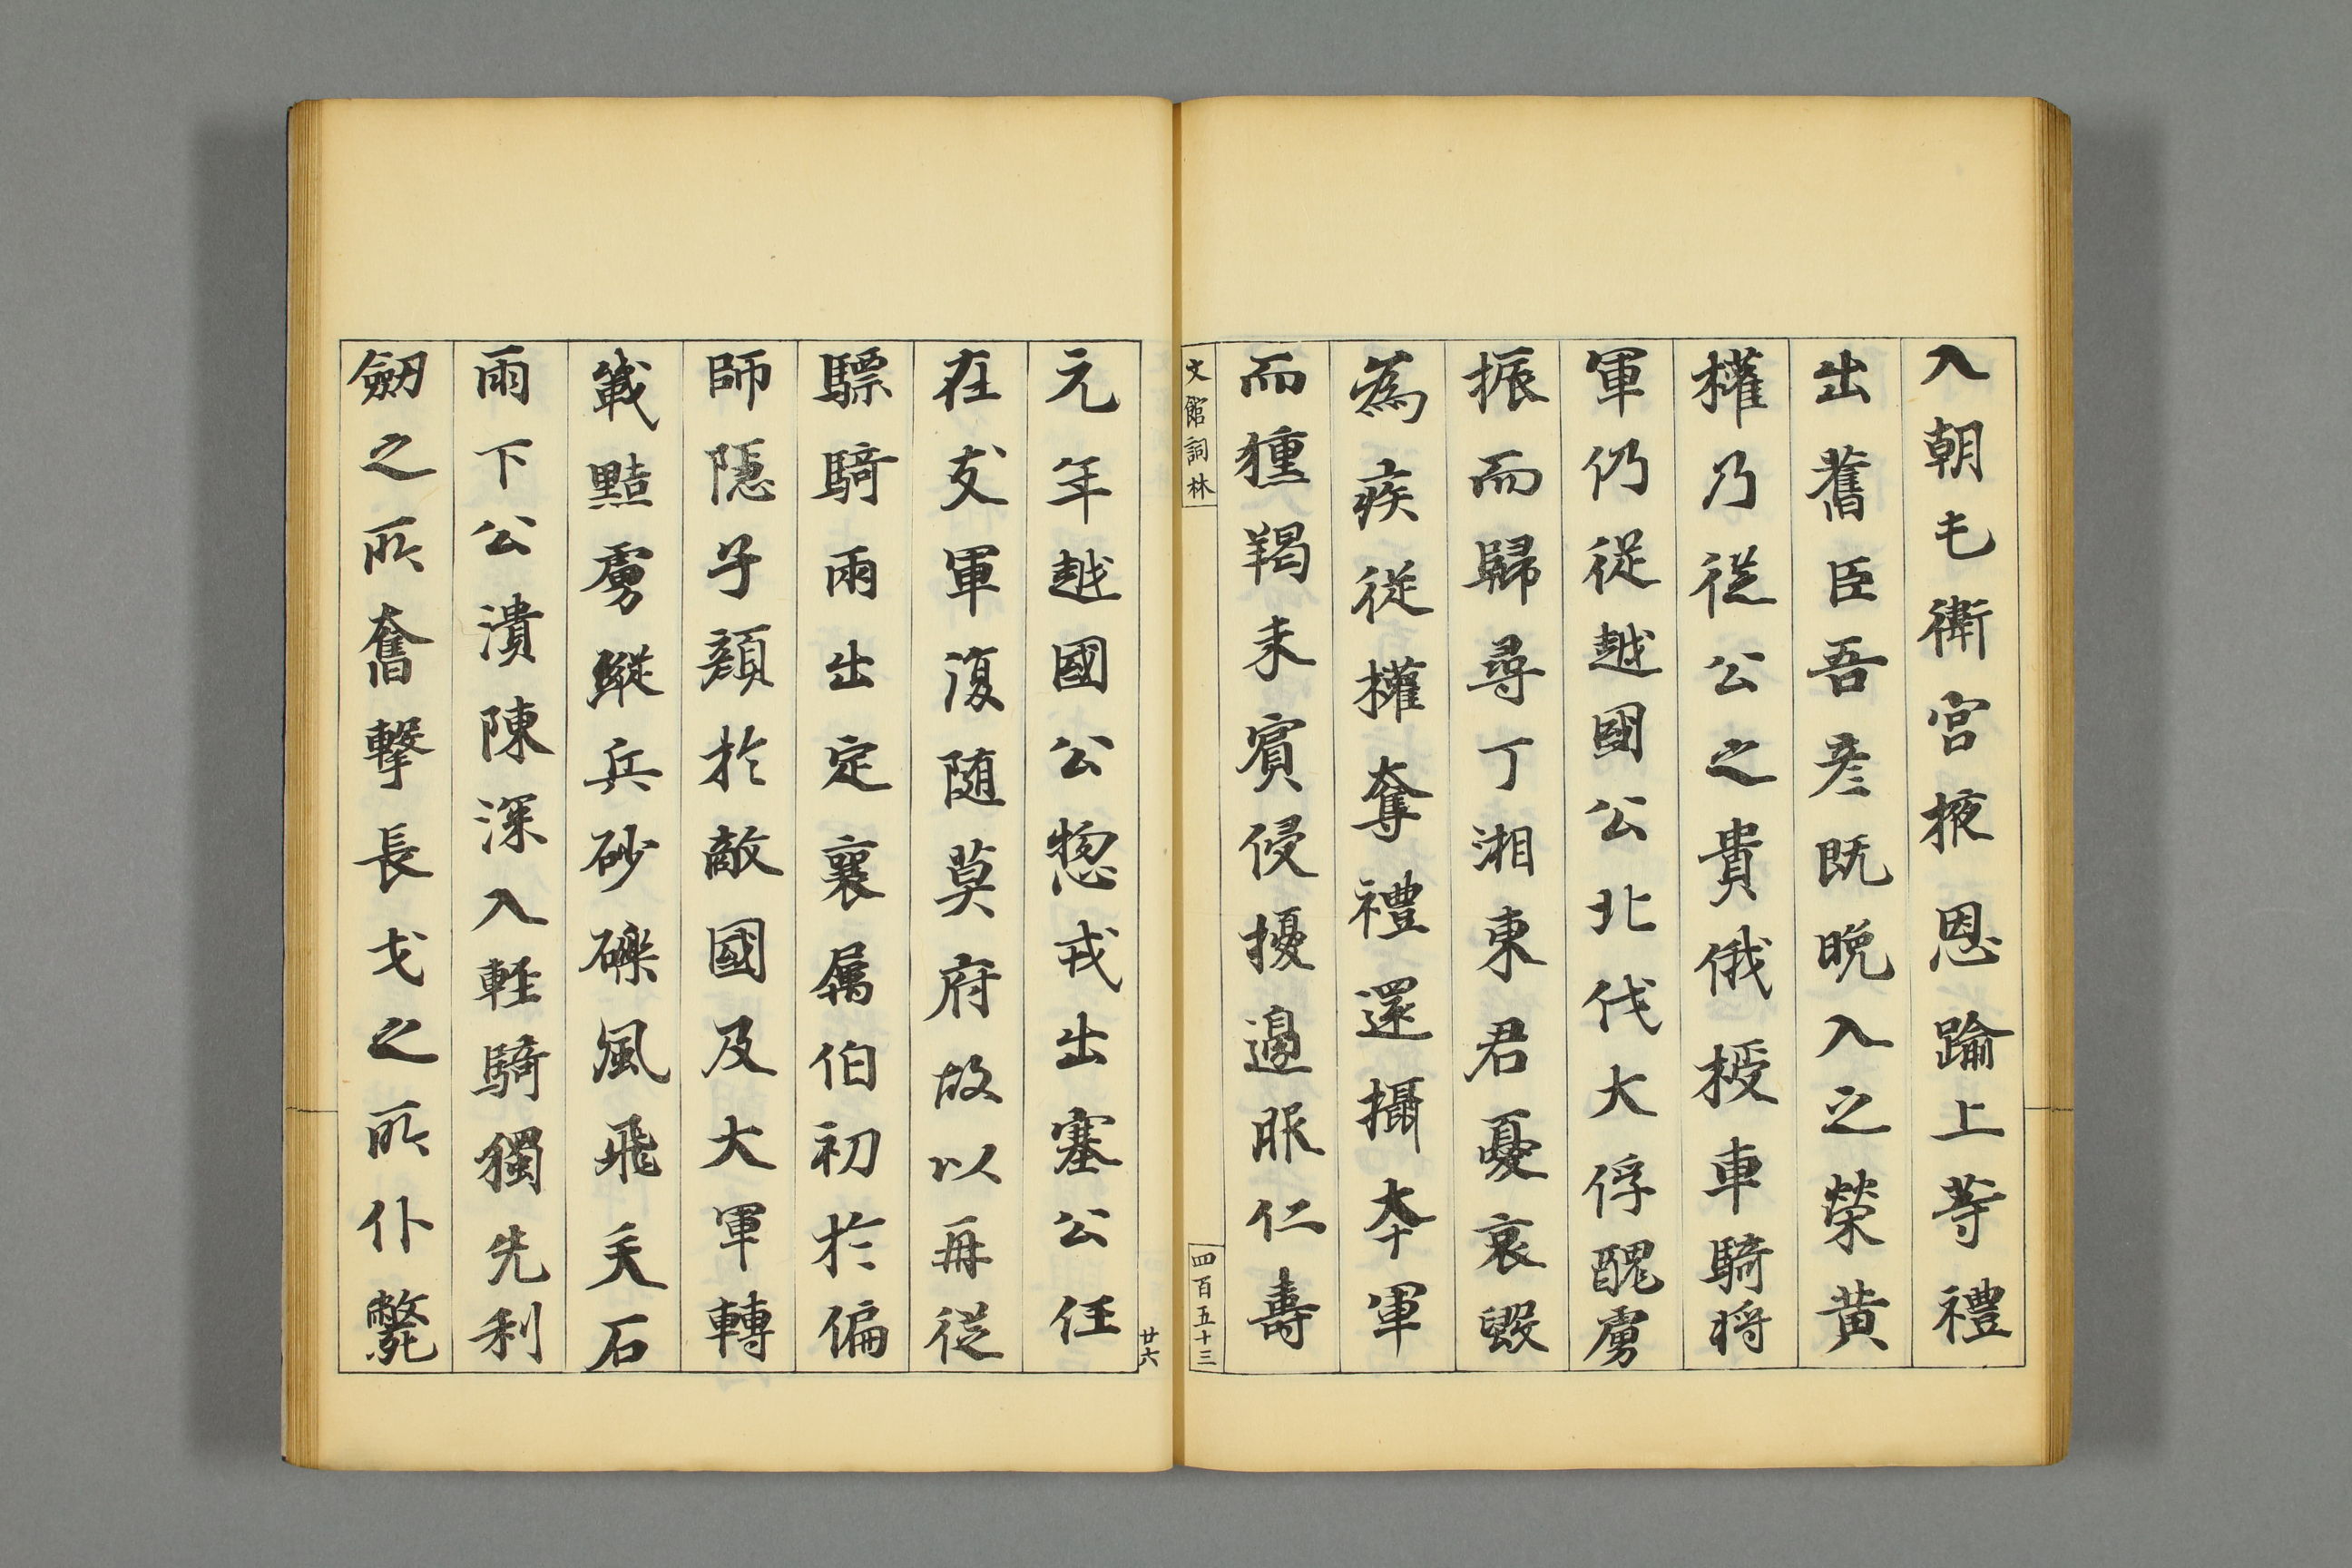 入朝毛衛宮掖恩踰上等禮
出舊臣吾彦既晩入之榮黄
權乃従公之貴俄授車騎将
軍仍従越國公北伐大俘醜虜
振而歸尋丁湘東君憂哀毀
為疾従權奪禮還攝夲軍
而獯羯未賓侵擾邊眼仁壽
文館詞林
四百五十三
廿六
元年越國公惣戎出塞公任
在友軍復随莫府故以再従
驃騎雨出定襄属伯初於偏
師隠子顔於敵國及大軍轉
戰黠虜縱兵砂礫風飛矢石
雨下公潰陳深入軽騎獨先利
劒之所奮擊長戈之所仆斃